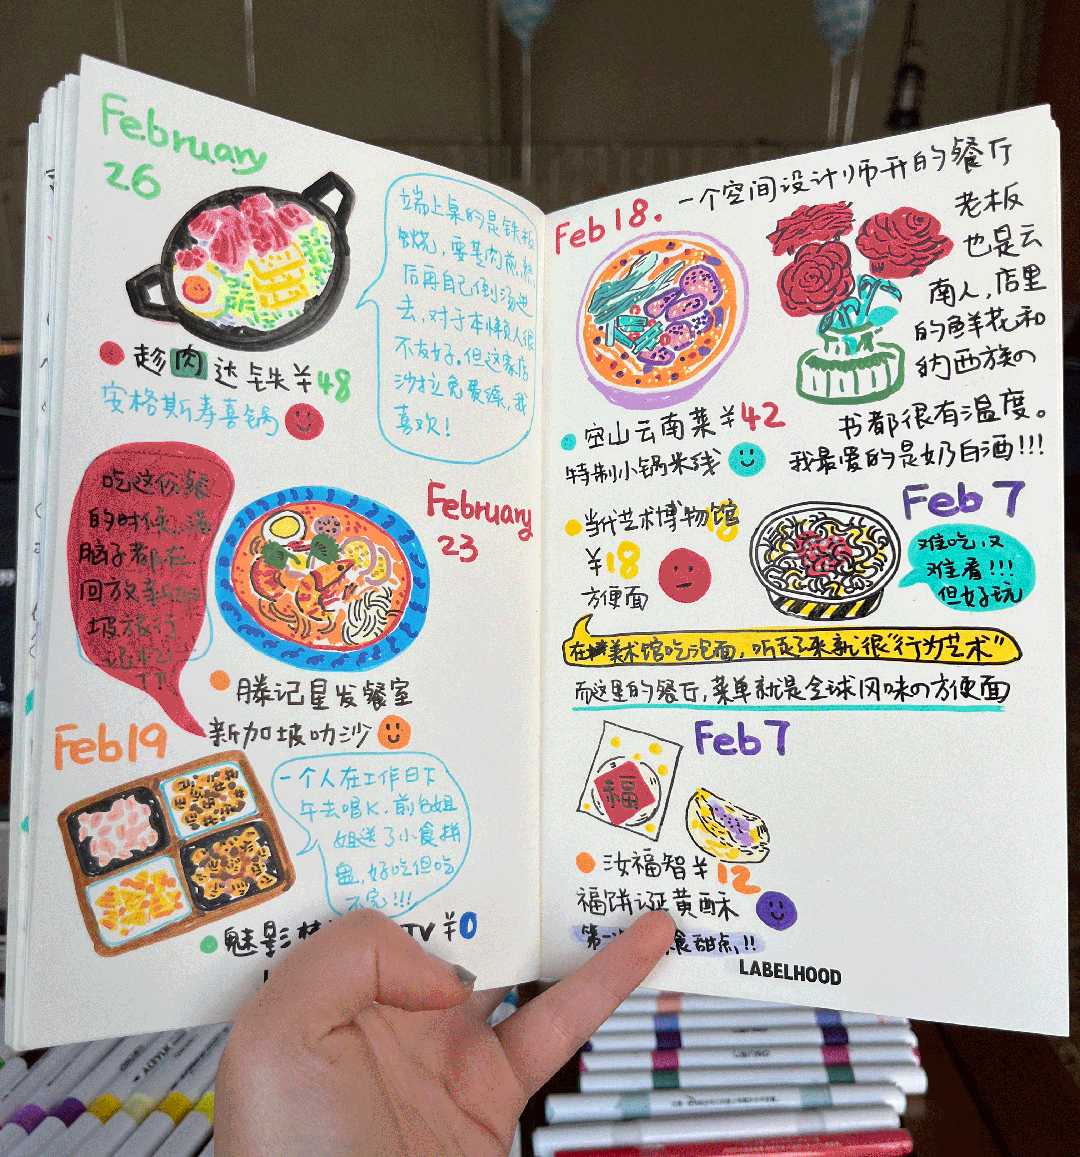 February
26
端上桌的是铁板
后再自己倒汤进
去,对于本懒人很
不友好.但这家店
沙拉免费续,我
喜欢!
趁肉达铁¥48
安格斯寿喜锅
吃这份餐
的时候,满
脑子都在
回放新加
坡旅行
February
23
滕记星发餐室
新加坡叻沙
Feb19
一个人在工作日下
午去唱K.前台姐
姐送了小食拼
盘,好吃但吃
不完!!!
魅影
TV ¥0
Feb 18.
一个空间设计师开的餐厅
老板
也是云
南人,店里
的鲜花和
纳西族の
书都很有温度。
我最爱的是奶白酒!!!
空山云南菜¥42
特制小锅米线
Feb 7
当代艺术博物馆
¥18
方便面
难吃,又
难看!!!
但好玩
在美术馆吃泡面,听起来就很“行为艺术”
而这里的餐厅,菜单就是全球风味の方便面
Feb 7
福
汝福智¥12
福饼 黄酥
第一 食甜点!!
LABELHOOD